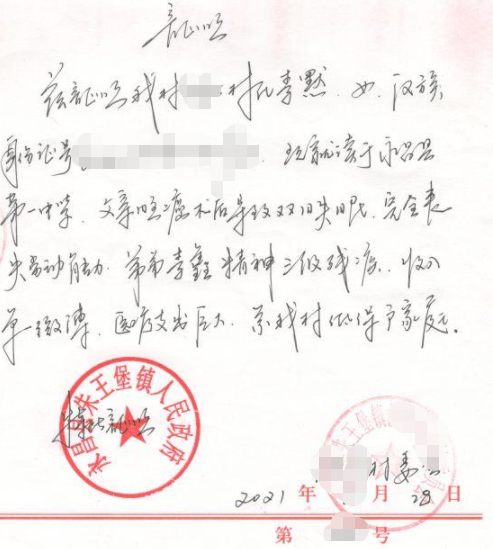 证明
兹证明我村 村民李默,女,汉族,
身份证号 。现就读于永昌县
第一中学,父亲脑瘤术后导致双目失明,完全丧
失劳动能力,弟弟李鑫精神三级残疾,收入
单一微薄,医疗支出巨大,系我村低保户家庭。
特此证明
永昌县朱王堡镇人民政府
朱王堡镇
村委
2021年 月28日
第 号